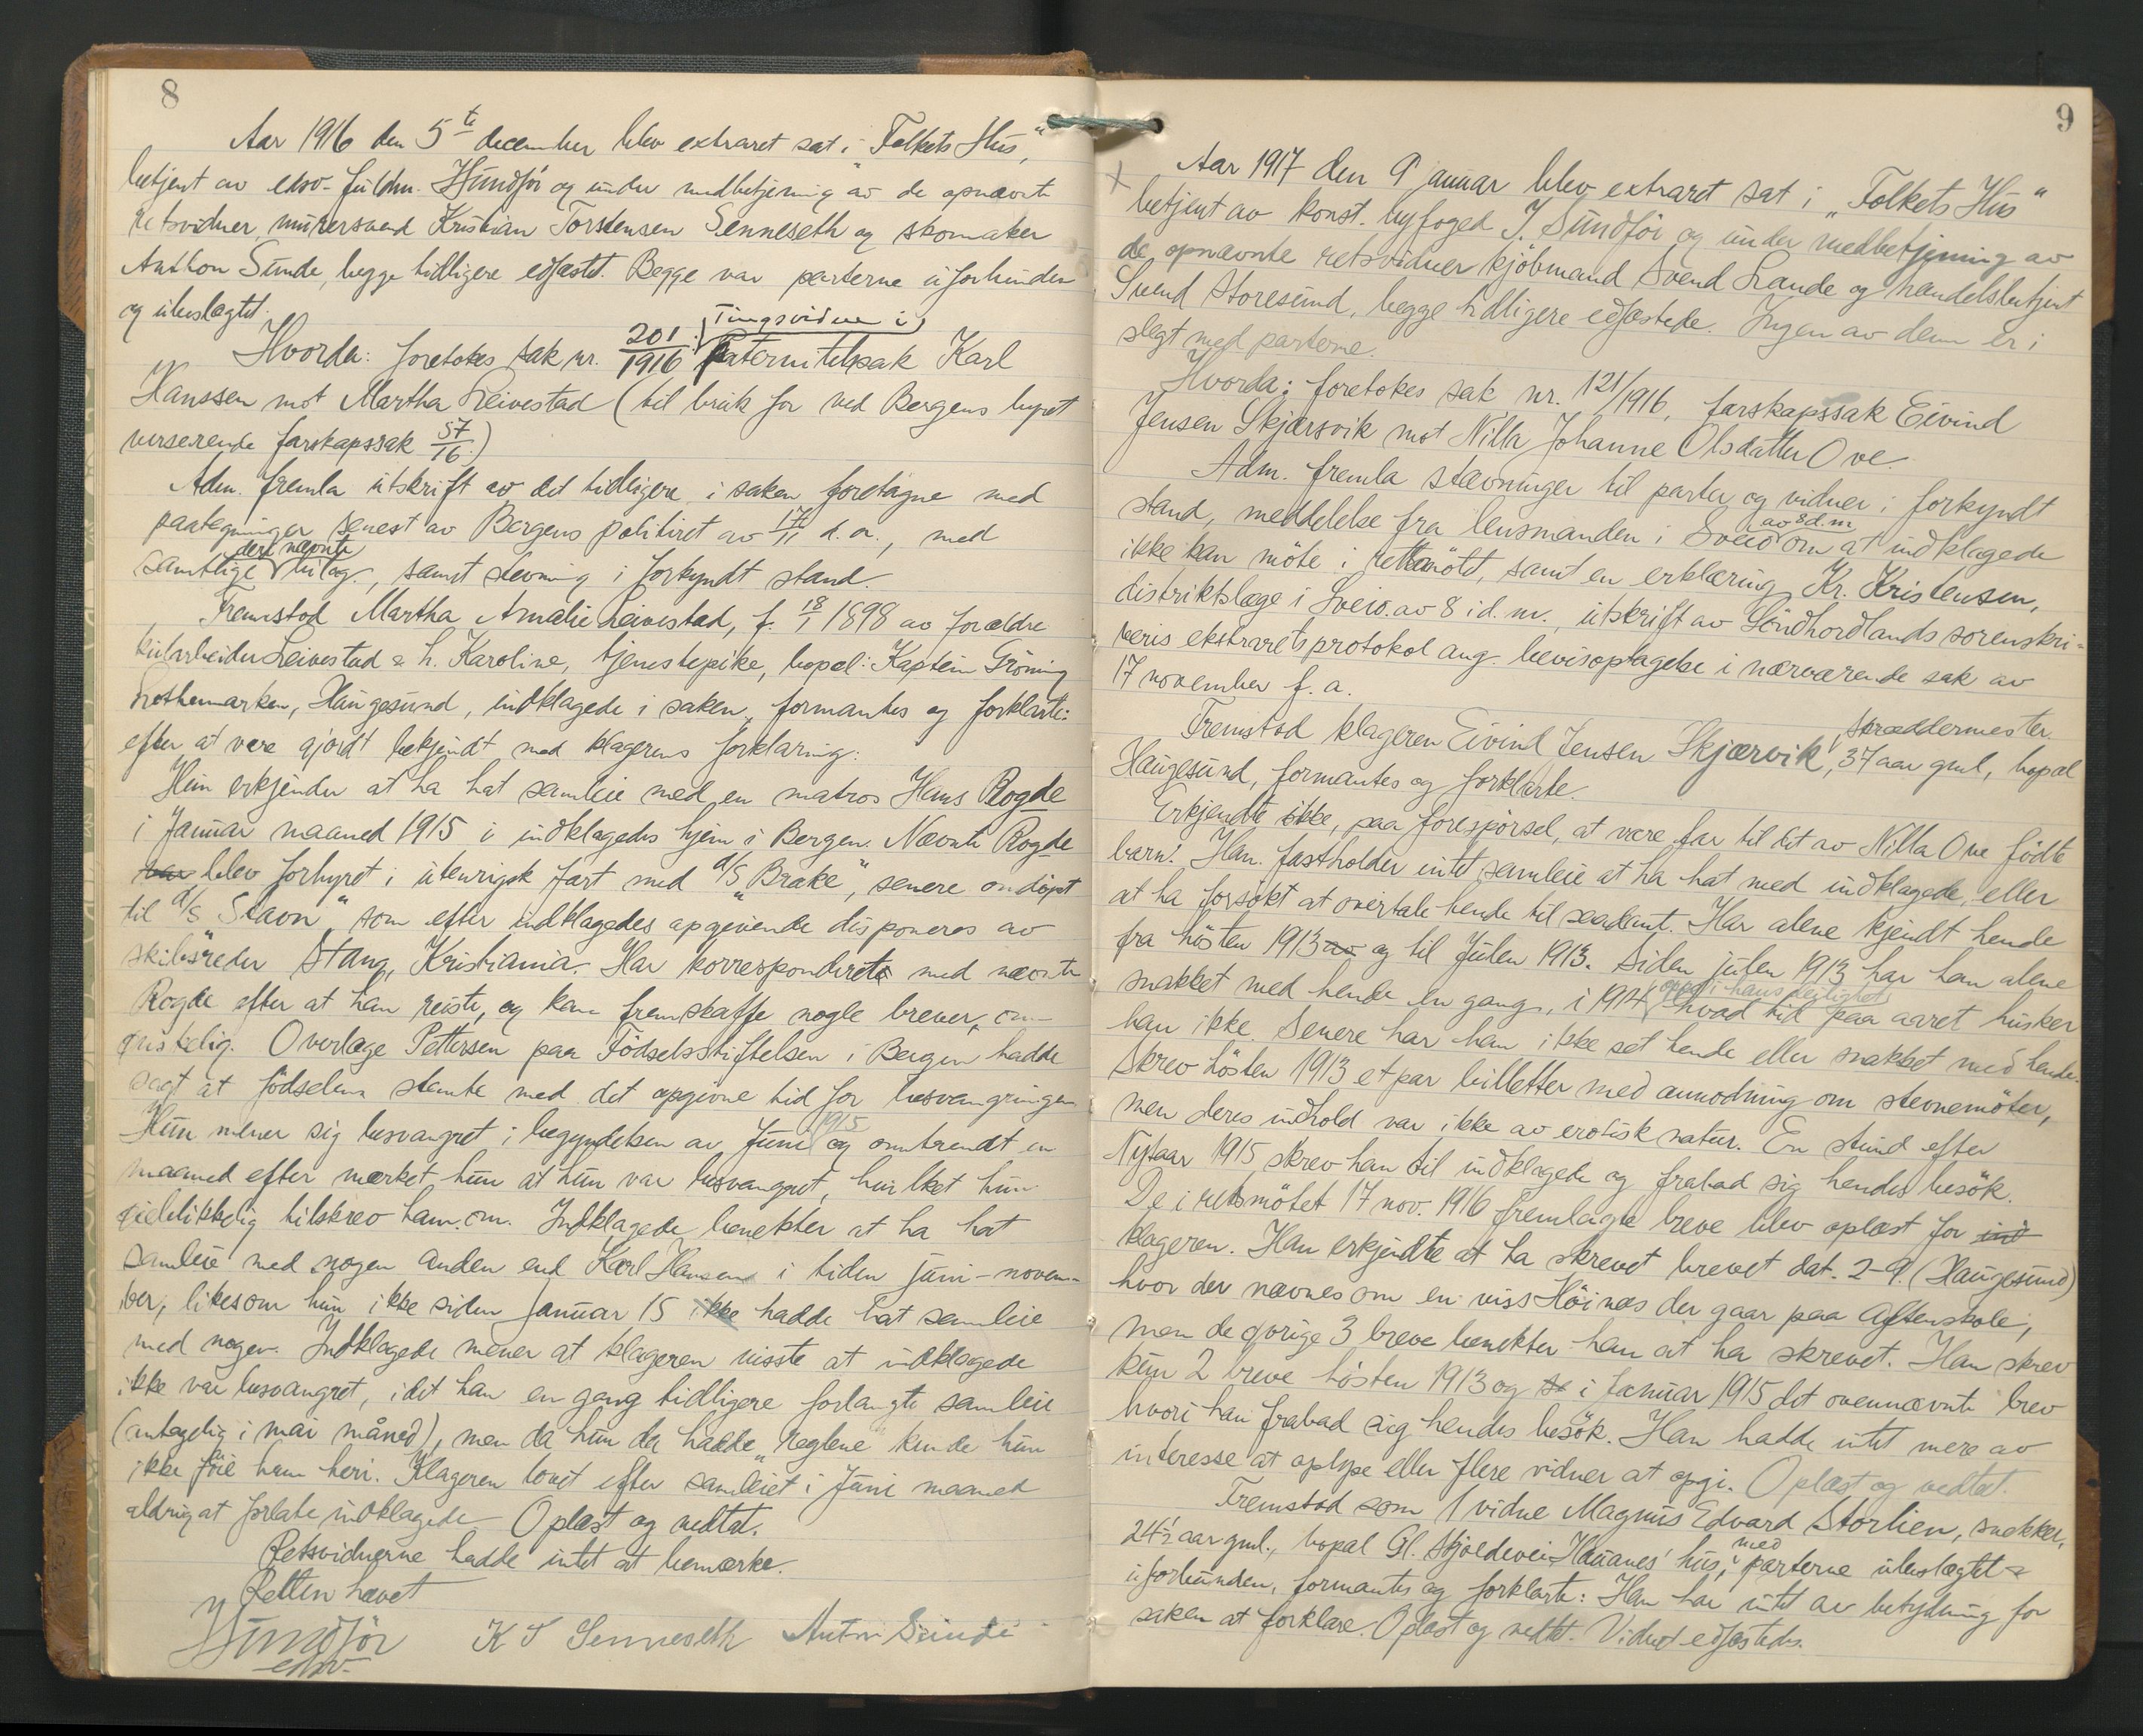 8
Aar 1916 den 5te december blev extraret sat i "Folkets Hus",
betjent av edsv. fuldm. J. Sundför og under medbetjening av de opnævnte
retsvidner murersvend Kristian Torstensen Senneseth og skomaker
Anthon Sunde, begge tidligere edfæstet. Begge var parterne uforbunden
og ubeslægtet.
Tingsvidne i
Hvorda: foretokes sak nr. 201/1916 Paternitetssak Karl
Hanssen mot Martha Leivestad (til bruk for ved Bergens byret
verserende farskapssak 57/16.)
Adm. fremla utskrift av det tidligere i saken foretagne med
paategninger senest av Bergens politiret av 17/11 d. a., med
deri nævnte
samtlige bilag, samt stevning i forkyndt stand.
Fremstod Martha Amalie Leivestad, f. 18/1 1898 av forældre
Leivestad & h. Karoline, tjenestepike, bopæl: Kaptein Gröning
Lothemarken, Haugesund, indklagede i saken, formantes og forklarte:
efter at være gjordt bekjendt med klagerens forklaring:
Hun erkjender at ha hat samleie med en matros Hans Rogde
i Januar maaned 1915 i indklagedes hjem i Bergen. Nævnte Rogde
var blev forhyret i utenrigsk fart med d/s "Brake", senere omdöpt
til d/s "Stavn" som efter indklagedes opgivende disponeres av
skibsreder Stang, Kristiania. Har korresponderet med nævnte
Rogde efter at han reiste, og kan fremskaffe nogle brever, om
ønskelig. Overlæge Pettersen paa Födselsstiftelsen i Bergen hadde
sagt at födselen stemte med det opgivne tid for besvangringen
1915
Hun mener sig besvangret i begyndelsen av Juni og omtrendt en
maaned efter merket hun at hun var besvangret, hvilket hun
øieblikkelig tilskrev ham om. Indklagede benekter at ha hat
samleie med nogen anden end Karl Hansen i tiden juni-novem-
ber, likesom hun ikke siden Januar 15 ikke hadde hat samleie
med nogen. Indklagede mener at klageren visste at indklagede
ikke var besvangret, idet han en gang tidligere forlangte samleie
(antagelig i mai måned), men da hun da hadde "reglene" kunde hun
ikke föie ham heri. Klageren lovet efter samleiet i Juni maaned
aldrig at forlate indklagede. Oplæst og vedtat.
Retsvidnerne hadde intet at bemærke.
Retten hævet
J Sundför K T Senneseth Anton Sunde
edsv.
9
x Aar 1917 den 9 januar blev extraret sat i "Folkets Hus"
betjent av konst. byfoged J. Sundför og under medbetjening av
de opnævnte retsvidner kjöbmand Svend Lande og handelsbetjent
Svend Storesund, begge tidligere edfæstede. Ingen av dem er i
slegt med parterne.
Hvorda: foretokes sak nr. 121/1916, farskapssak Eivind
Jensen Skjærsvik mot Nilla Johanne Olsdatter Ove.
Adm. fremla stævninger til parter og vidner i forkyndt
av 8 d.m.
stand, meddelelse fra lensmanden i Sveio om at indklagede
ikke kan möte i rettsmötet, samt en erklæring Kr. Kristensen,
distriktslæge i Sveio. av 8 i d. m., utskrift av Söndhordlands sorenskri-
veris ekstraretsprotokol ang. bevisoptagelse i nærværende sak av
17 november f. a.
skræddermester
Fremstod klageren Eivind Jensen Skjærvik, 37 aar gml, bopæl
Haugesund, formantes og forklarte.
Erkjendte ikke, paa forespörsel, at være far til det av Nilla Ove födte
barn. Han fastholder intet samleie at ha hat med indklagede, eller
at ha forsökt at overtale hende til saadant. Har alene kjendt hende
fra hösten 1913 av og til Julen 1913. Siden julen 1913 har han alene
oppe i hans leilighet
snakket med hende en gang, i 1914, hvad tid paa aaret husker
han ikke. Senere har han ikke set hende eller snakket med hende.
Skrev hösten 1913 et par billetter med anmodning om stevnemöter,
men deres indhold var ikke av erotisk natur. En stund efter
Nytaar 1915 skrev han til indklagede og frabad sig hendes besök.
De i retsmötet 17 nov. 1916 fremlagte breve blev oplæst for ind
klageren. Han erkjendte at ha skrevet brevet dat. 2-9. (Haugesund)
hvor der nævnes om en viss Höinæs der gaar paa Aftenskole,
men de øvrige 3 breve benekter han at ha skrevet. Han skrev
kun 2 breve hösten 1913 og i Januar 1915 det ovennævnte brev
hvori han frabad sig hendes besök. Han hadde intet mere av
interesse at oplyse eller flere vidner at opgi. Oplæst og vedtat.
Fremstod som 1 vidne Magnus Edvard Storlien, snekker,
med
24½ aar gml., bopæl Gl. Skjoldevei Hauanes' hus, parterne ubeslægtet &
uforbunden, formantes og forklarte: Han har intet av betydning for
saken at forklare. Oplæst og vedtat. Vidnet edfæstedes.